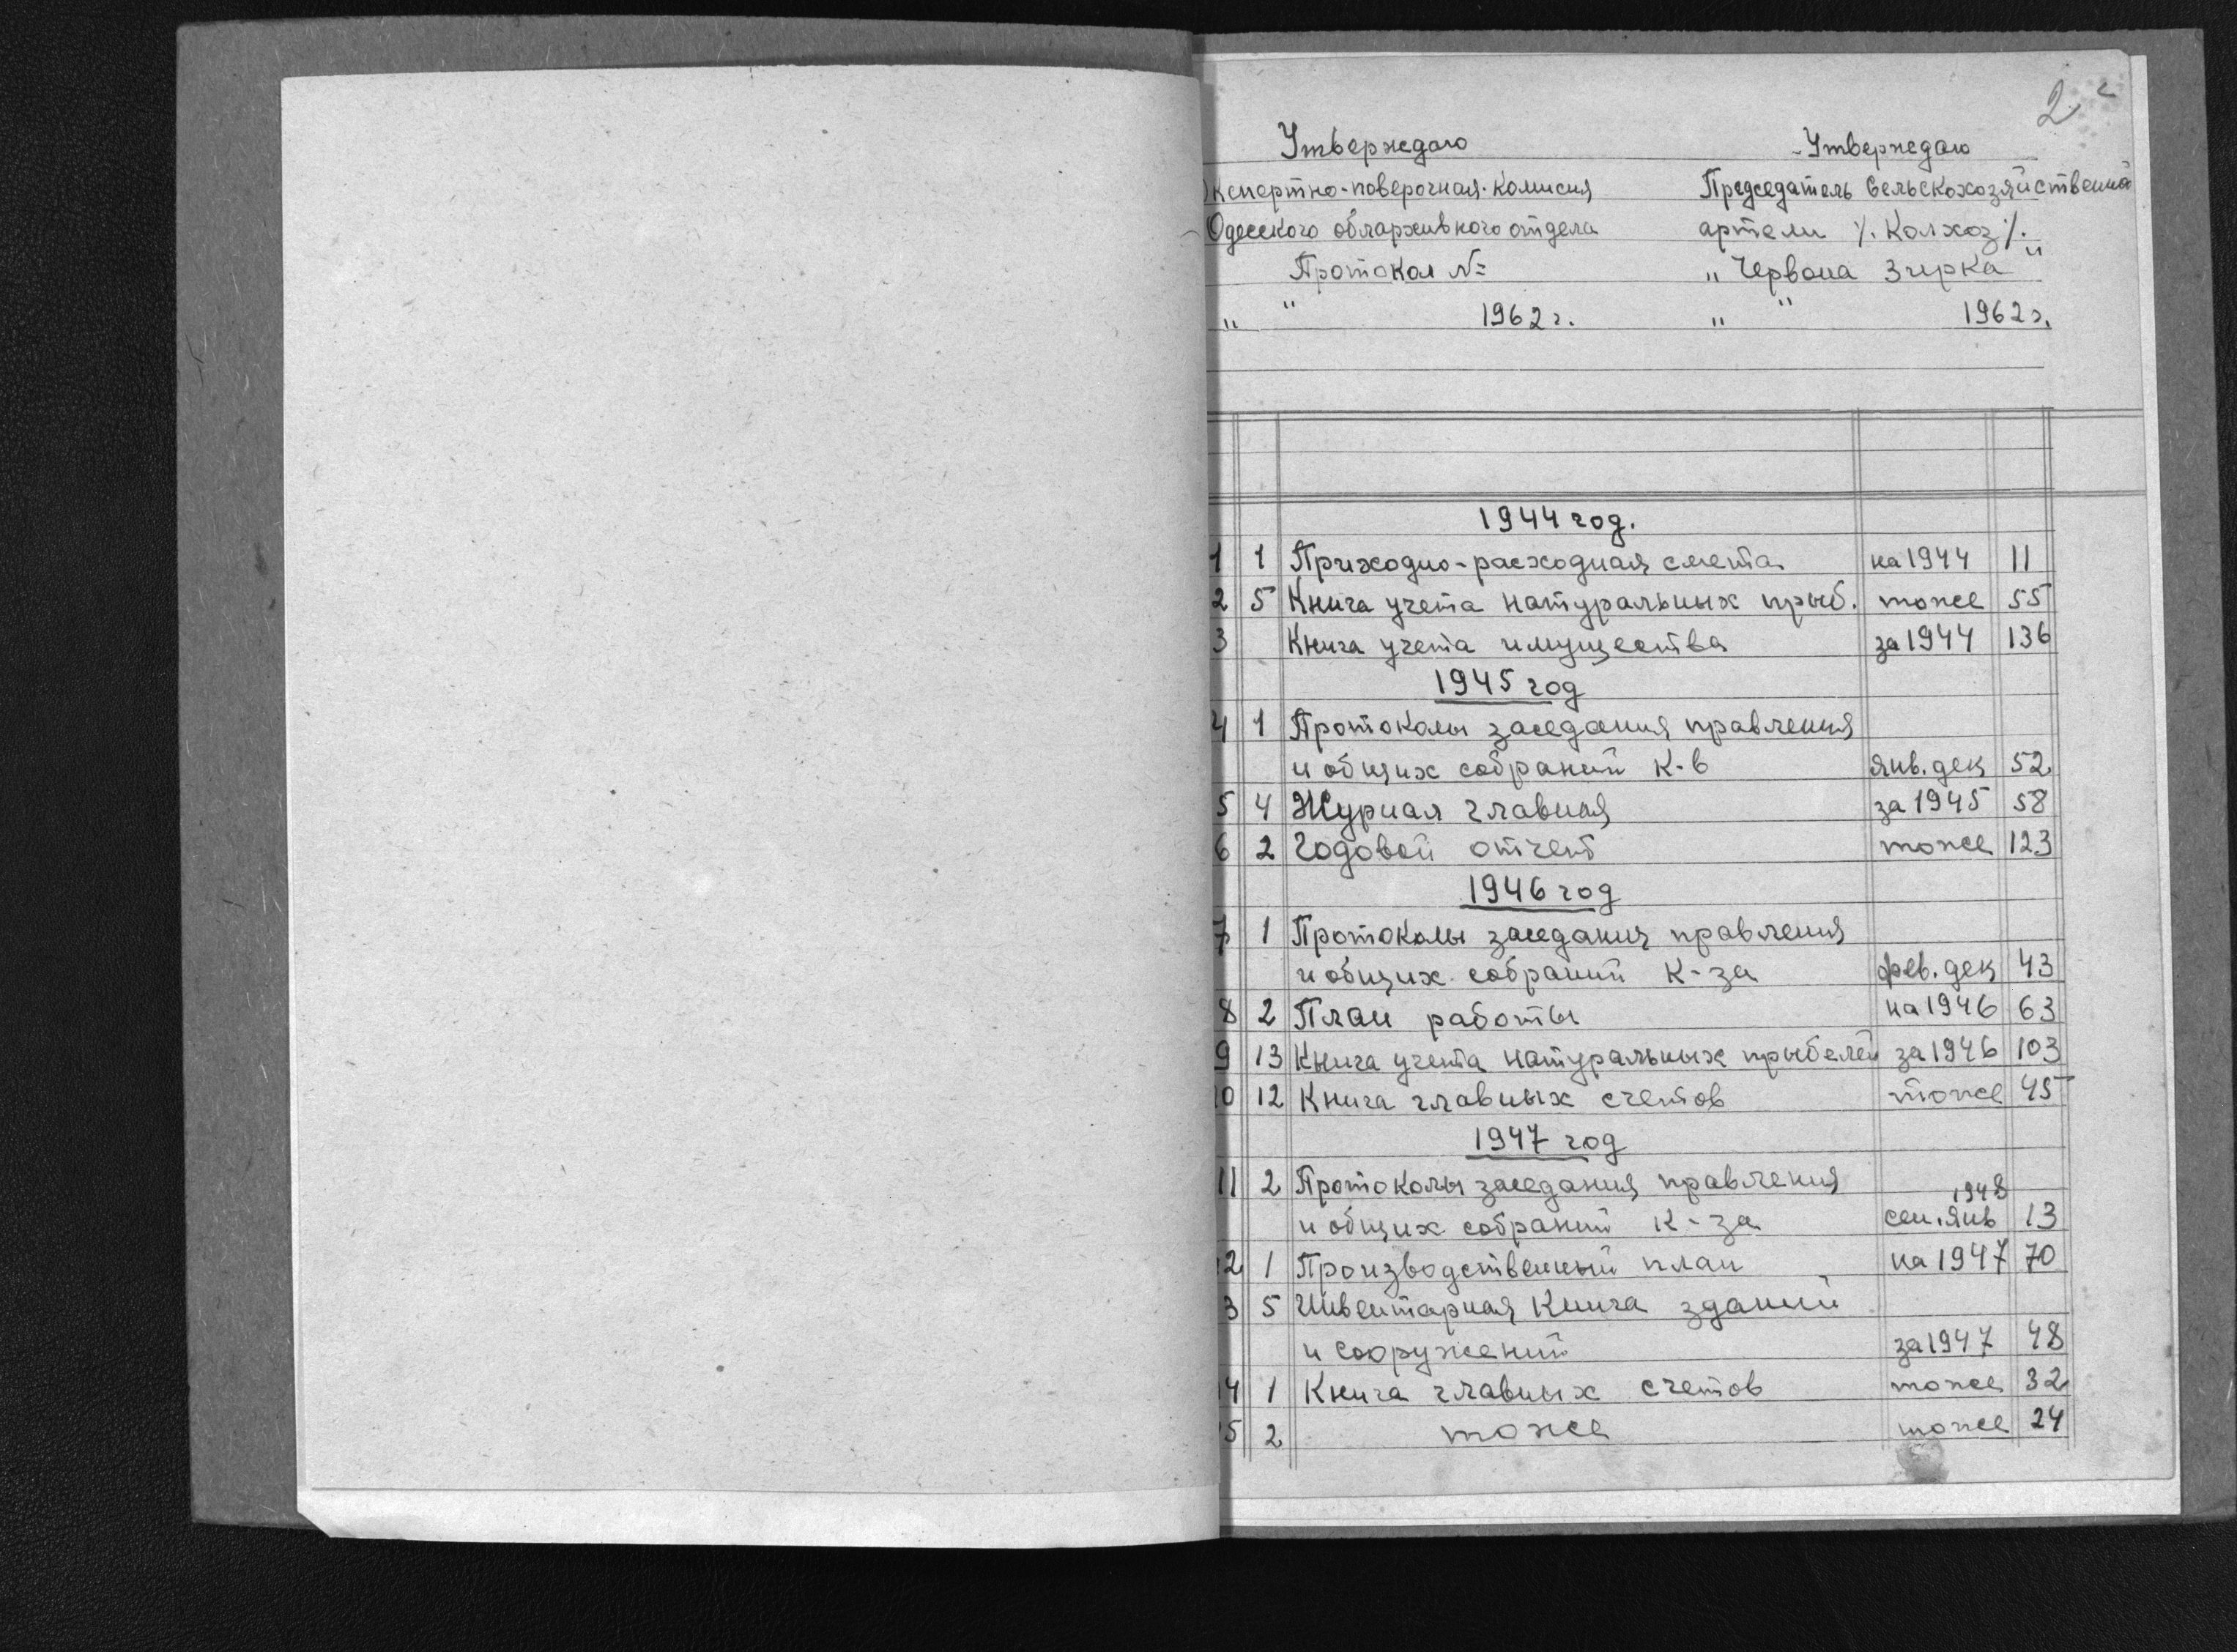 2
Утверждаю
Утверждаю
Экспертно-поверочная комисия
Председатель Сельскохозяйственной
Одесского облархивного отдела
артели /. Колхоз /.
Протокол №
„ Червона Зирка "
„ " 1962 г.
„ " 1962 г.
1944 год.
1 1 Приходно-расходная смета на 1944 11
2 5 Книга учета натуральных прыб. тоже 55
3 Книга учета имущества за 1944 136
1945 год
4 1 Протоколы заседания правления
и общих собраний к-в янв. дек 52
5 4 Журнал главная за 1945 58
6 2 Годовой отчет тоже 123
1946 год
7 1 Протоколы заседания правления
и общих собраний к-за фев. дек 43
8 2 План работы на 1946 63
9 13 Книга учета натуральных прыбелей за 1946 103
10 12 Книга главных счетов тоже 45
1947 год
11 2 Протоколы заседания правления
1948
и общих собраний к-за сен. янв 13
12 1 Производственный план на 1947 70
13 5 Инвентарная книга зданий
и сооружений за 1947 48
14 1 Книга главных счетов тоже 32
15 2 тоже тоже 24